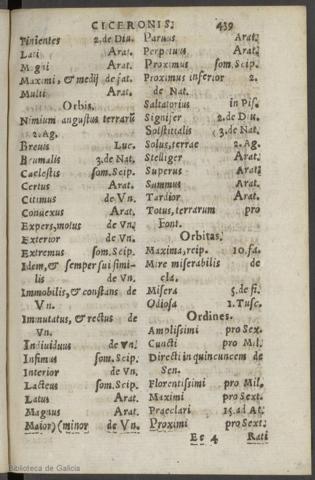 CICERONIS.
439
Finientes 2.de Diu.
Lati Arat.
Magni Arat.
Maximi, & medij de fat.
Multi Arat.
Orbis.
Nimium angustus terrarũ
2. Ag.
Breuis Luc.
Brumalis 3. de Nat.
Caelestis som.Scip.
Certus Arat.
Citimus de Vn.
Conuexus Arat.
Expers, motus de Vn.
Exterior de Vn.
Extremus som.Scip.
Idem, & semper sui simi-
lis de Vn.
Immobilis, & constans de
Vn.
Immutatus, & rectus de
Vn.
Indiuiduus de Vn.
Infimus som.Scip.
Interior de Vn.
Lacteus som.Scip.
Latus Arat.
Magnus Arat.
Maior)(minor de Vn.
Paruus Arat.
Perpetuus Arat.
Proximus som.Scip.
Proximus inferior 2.
de Nat.
Saltatorius in Pis.
Signifer 2.de Diu.
Solstitialis 3.de Nat.
Solus, terrae 2. Ag.
Stelliger Arat.
Superus Arat.
Summus Arat.
Tardior Arat.
Totus, terrarum pro
Font.
Orbitas.
Maxima, reip. 10.fa.
Mire miserabilis de
cla.
Misera 5.de fi.
Odiosa 1.Tusc.
Ordines.
Amplissimi pro Sex.
Cuncti pro Mil.
Directi in quincuncem de
Sen.
Florentissimi pro Mil.
Maximi pro Sext.
Praeclari 15.ad At.
Proximi pro Sext.
Ee 4 Rati
Biblioteca de Galicia